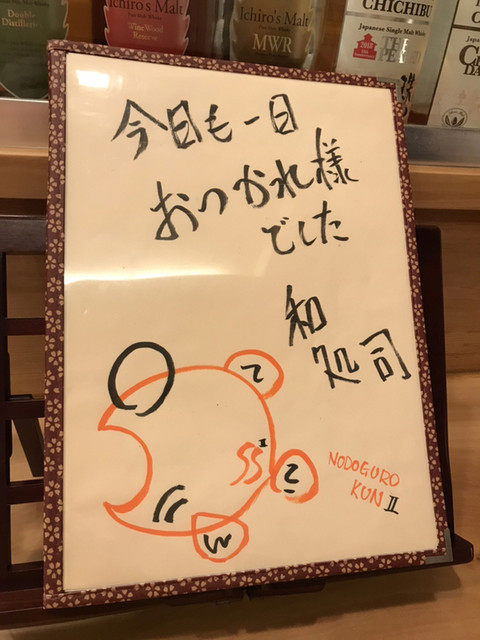 Double
Distilleries
Ichiro's Malt
Wine Wood
Reserve
Ichiro's Malt
MWR
CHICHIBU
Japanese Single Malt Whisky
THE
今日も一日
おつかれ様
でした
和
処司
NODOGURO
KUN II